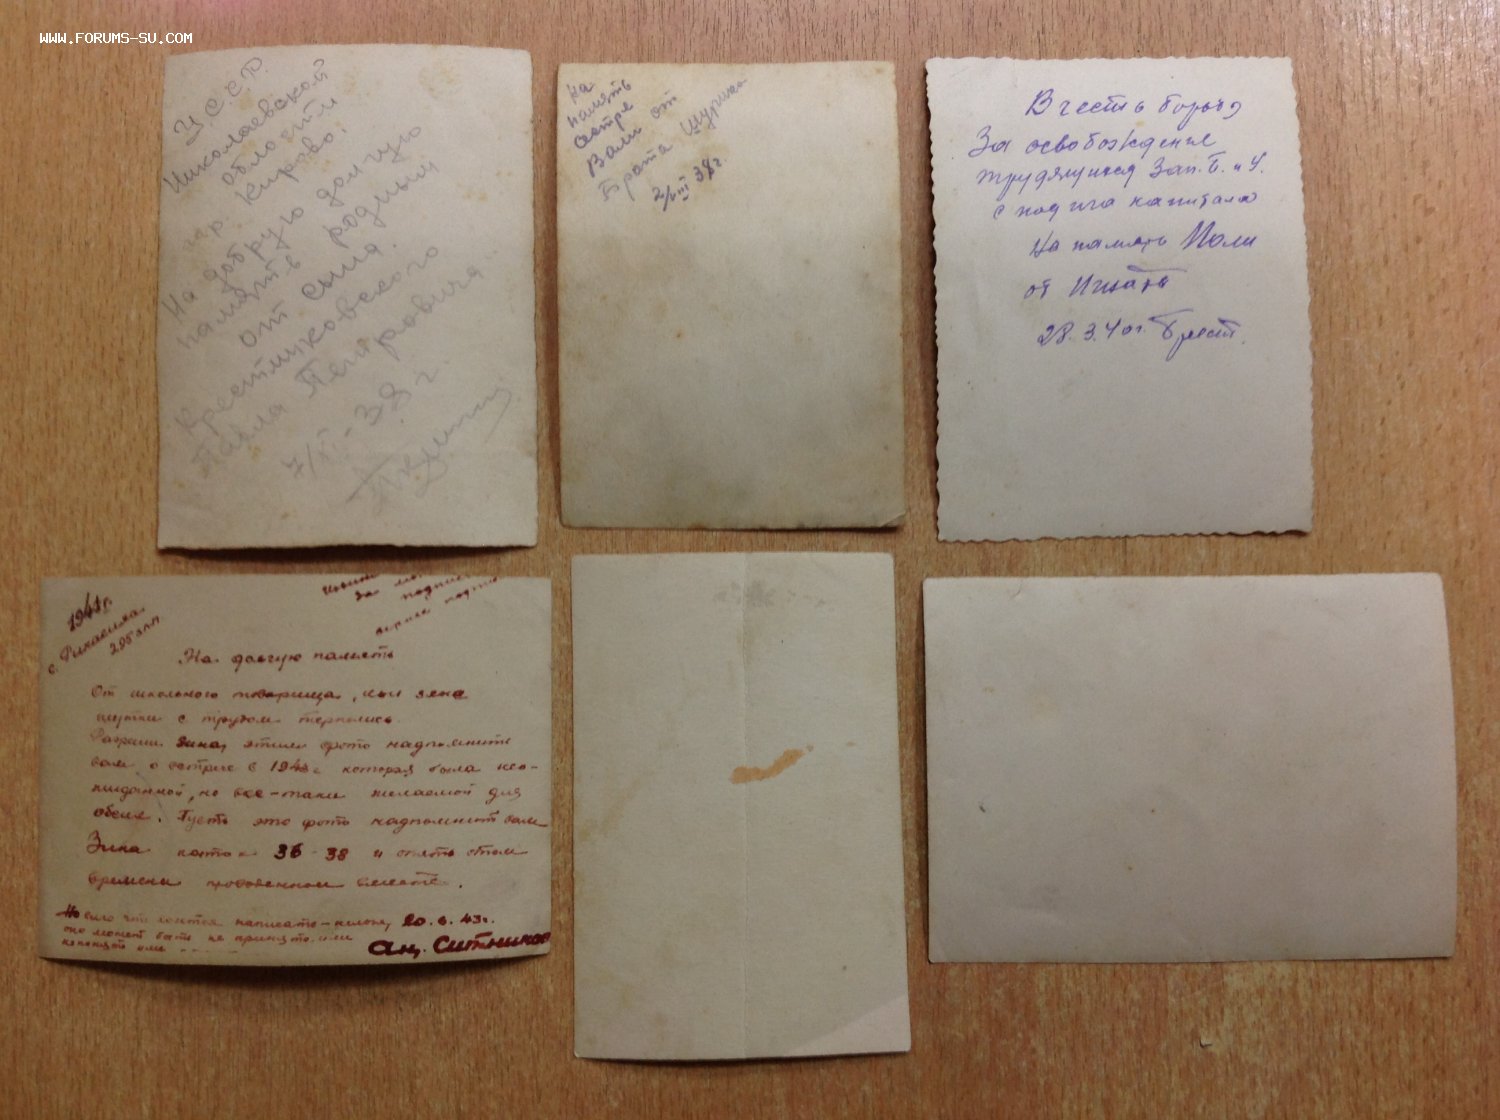 WWW.FORUMS-SU.COM
У.С.С.Р.
Николаевской
области
гор. Кирово.
На добрую долгую
память родным
от сына.
Крестниковского
Павла Петровича
7/XI-38 г
На
память
сестре
Вали от
Брата Шурика
2/VIII 38г
В честь борьбы
За освобождение
трудящихся Зап. Б. и У.
с под ига капитала
На память Поли
от Игната
28.3.40г. Брест.
1943г.
с.
295 апп
за
На долгую память
От школьного товарища,
шутки с трудом терпелись.
Разреши Зина, этим фото надпомнить
вам о встрече в 1943г которая была нео-
жиданной, но все-таки желаемой для
обеих. Пусть это фото надпомнит вам
Зина каток 36-38 и опять
времени проведенном вместе.
Но еще что хочется написать 20.6.43г.
оно может быть не принято или
Ан. Ситников